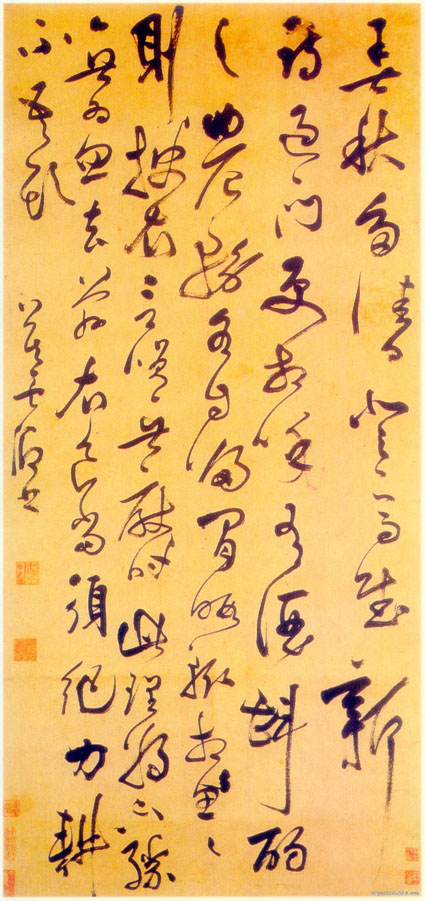 春秋多佳日登高賦新
詩過門更相呼有酒斟酌
之農務各自歸閒暇輒相思〻
則披衣言笑無厭時此理將不勝
無為忽去茲衣食當須紀力耕
不吾欺
莫雲卿書